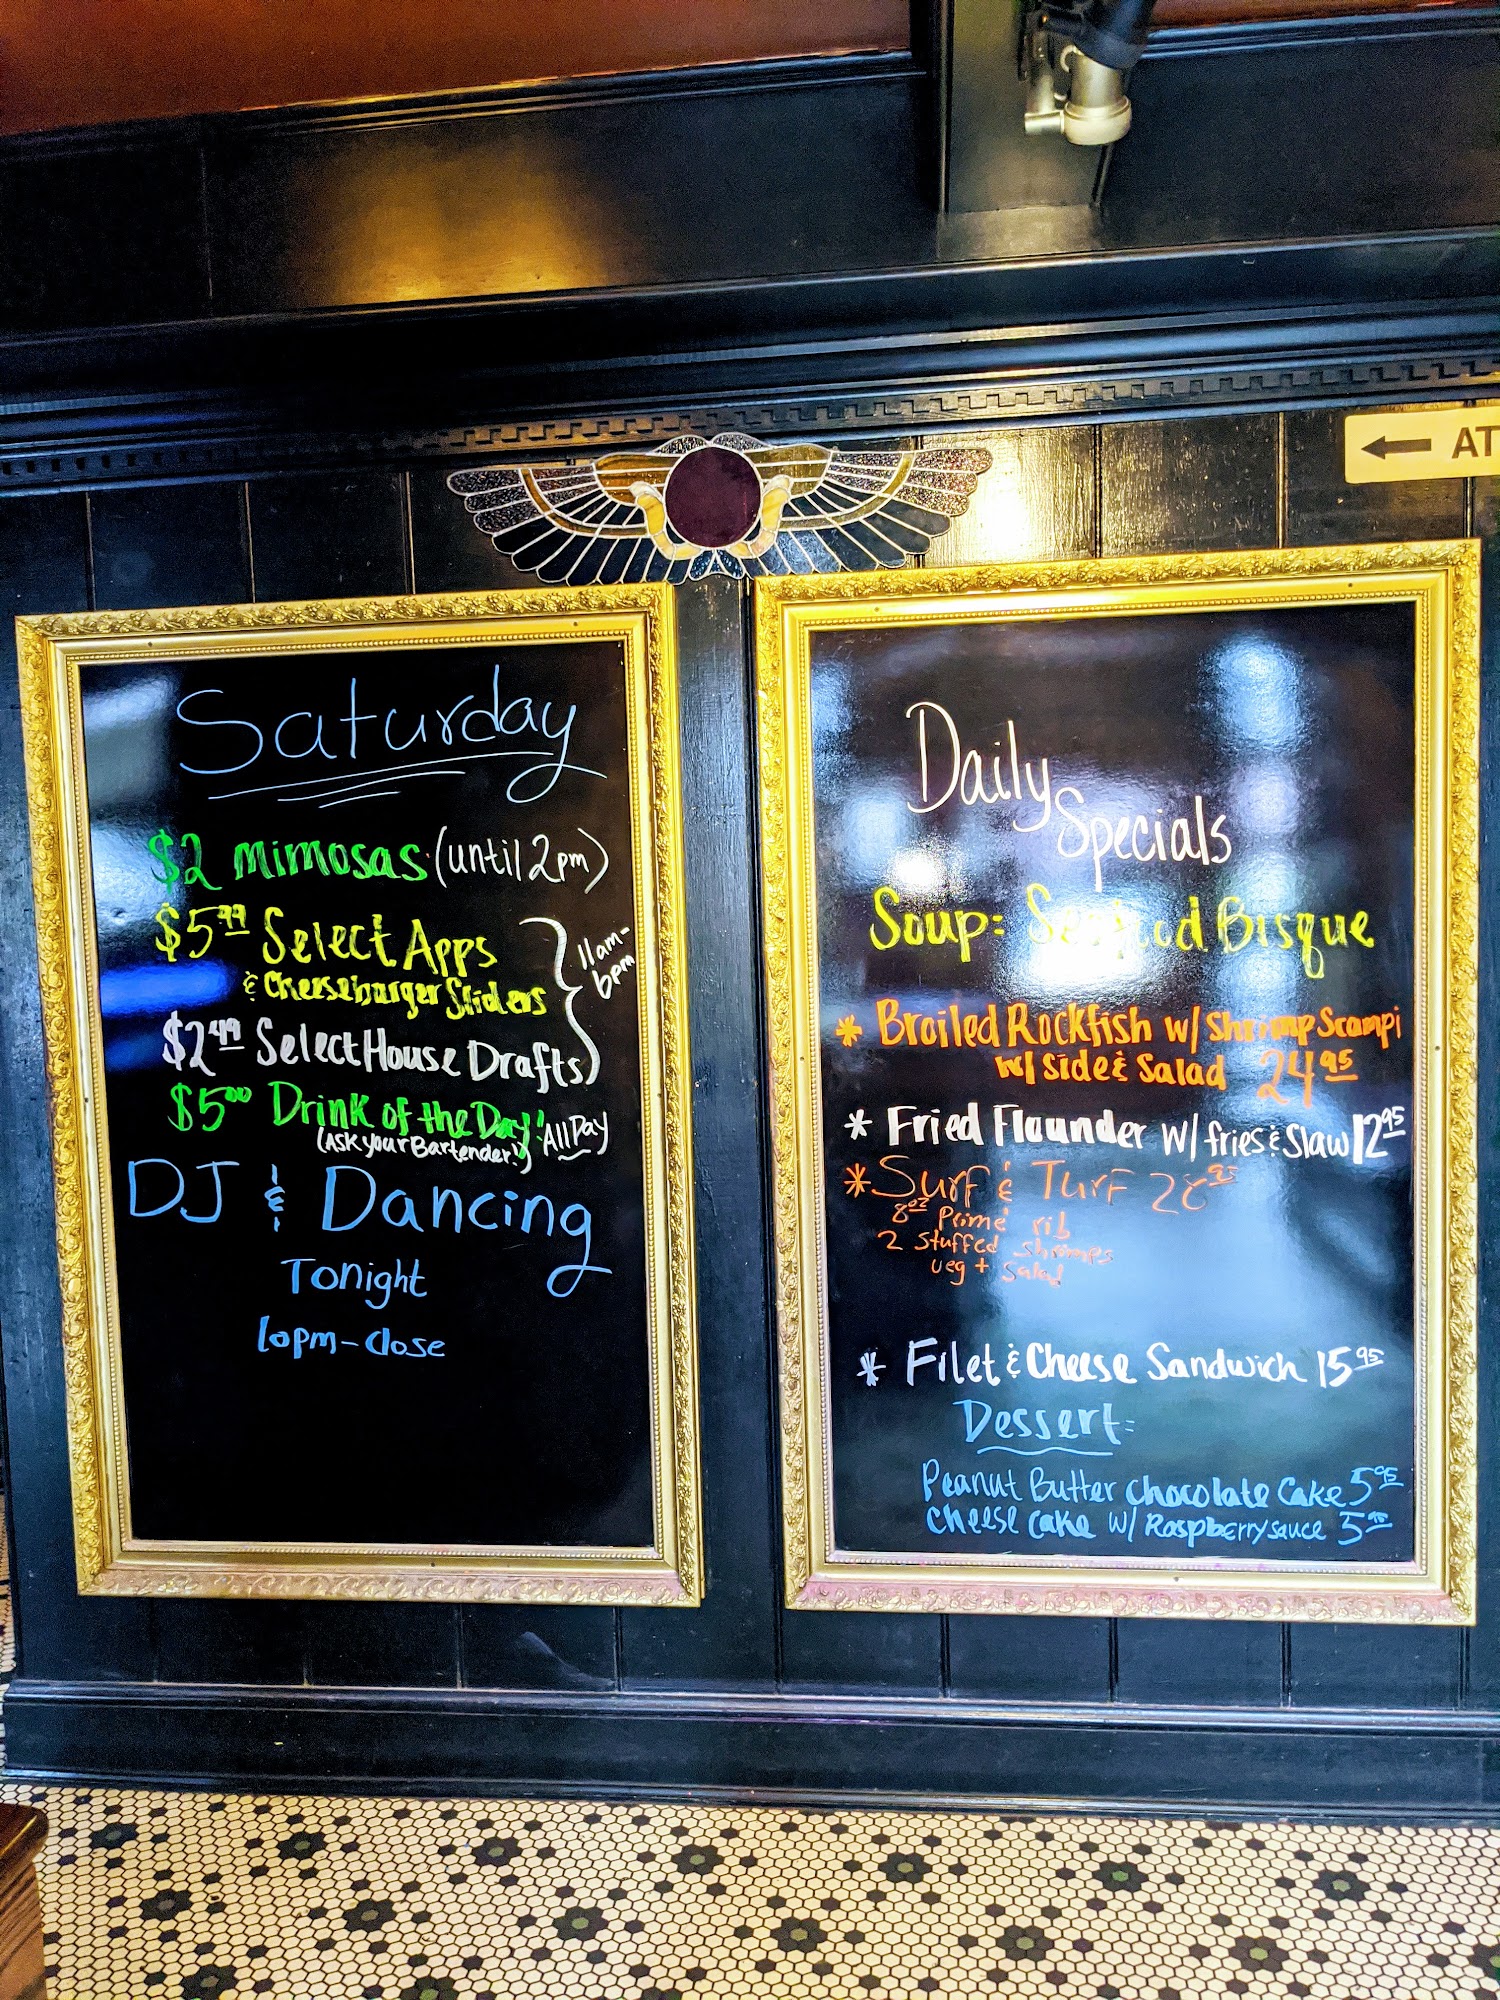 ← AT
Saturday
$2 Mimosas (until 2pm)
$5.99 Select Apps
& Cheeseburger Sliders
11am-
6pm
$2.49 Select House Drafts
$5.00 Drink of the Day! All Day
(Ask your Bartender!)
DJ & Dancing
Tonight
10pm-close
Daily
Specials
Soup: Seafood Bisque
* Broiled Rockfish w/ Shrimp Scampi
w/ side & Salad 24.95
* Fried Flounder w/ fries & Slaw 12.95
* Surf & Turf 28.95
8oz Prime rib
2 stuffed shrimps
veg + Salad
* Filet & Cheese Sandwich 15.95
Dessert:
Peanut Butter chocolate Cake 5.95
cheese cake w/ Raspberry sauce 5.95